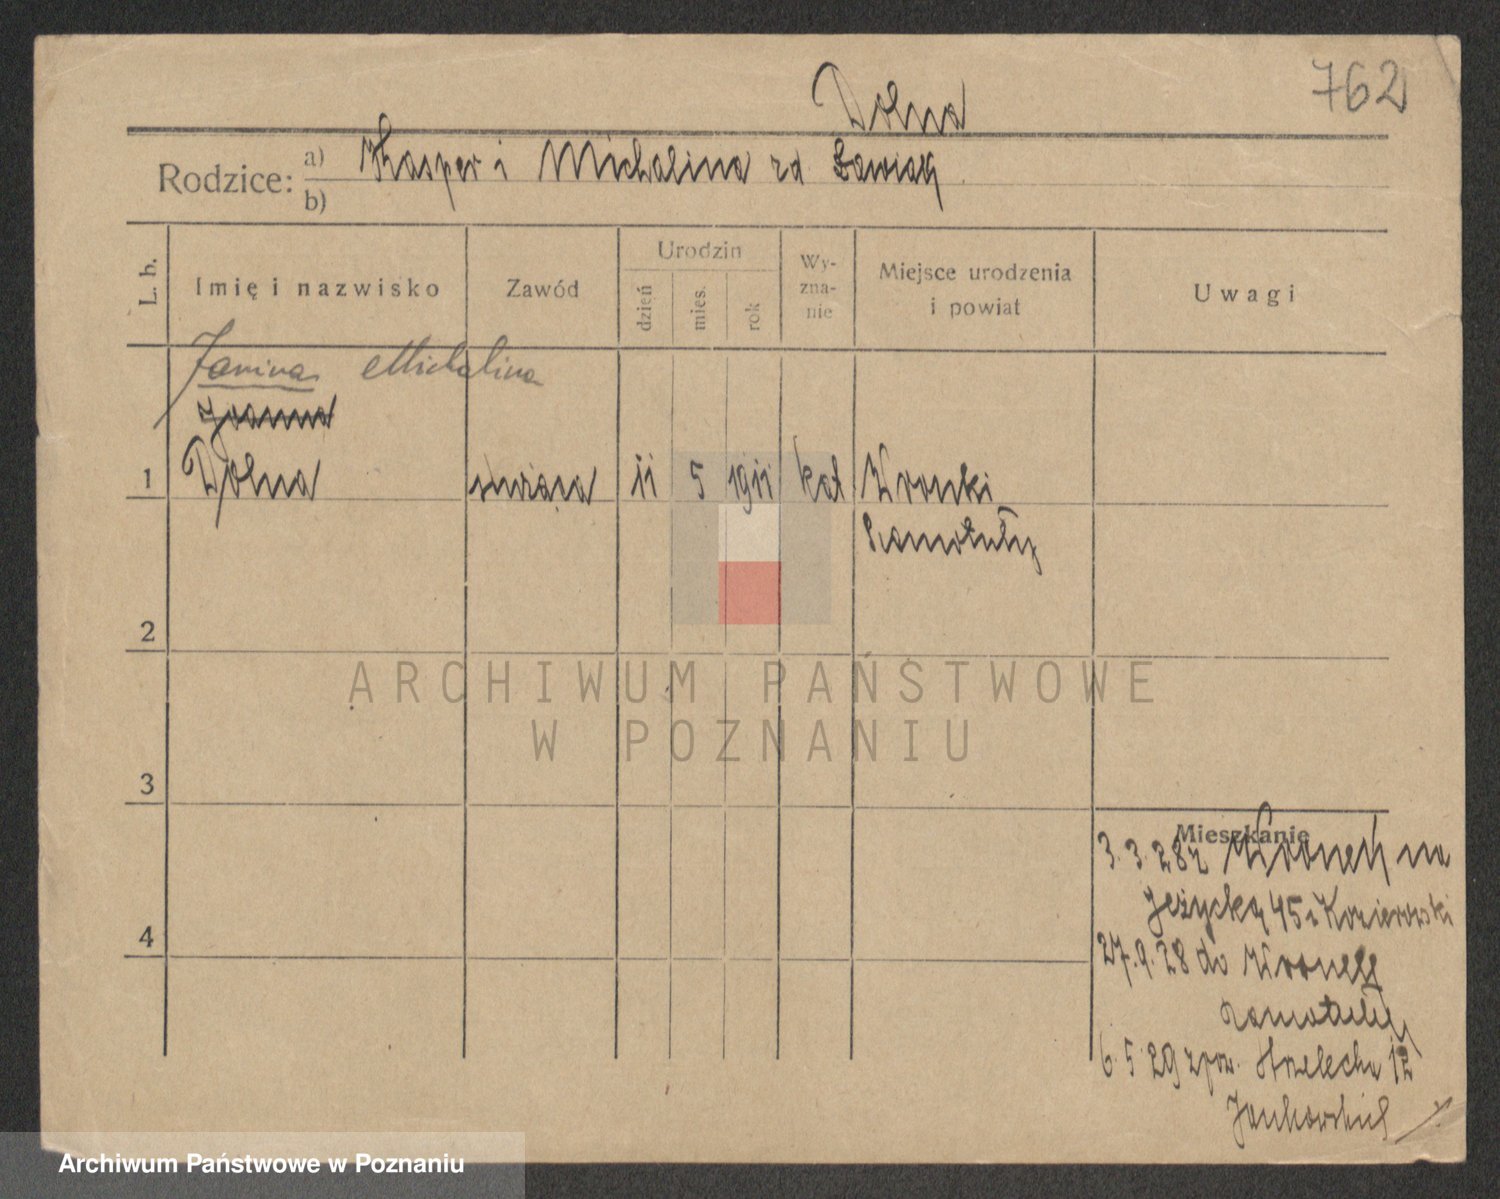 762
Dolna
Rodzice: a) Kasper i Michalina zd
b)
L. b. Imię i nazwisko Zawód Urodzin dzień mies. rok Wy-zna-nie Miejsce urodzenia i powiat Uwagi
Janina Michalina
Joanna
1 Dolna służąca 11 5 1911 kat Wronki
Szamotuły
2
ARCHIWUM PAŃSTWOWE
W POZNANIU
3
Mieszkanie
3.3.28 z Wronek na
Jeżycką 45
4
27.9.28 do Wronek
Szamotuły
6.5.29 zpow. Strzelecka 12
Archiwum Państwowe w Poznaniu